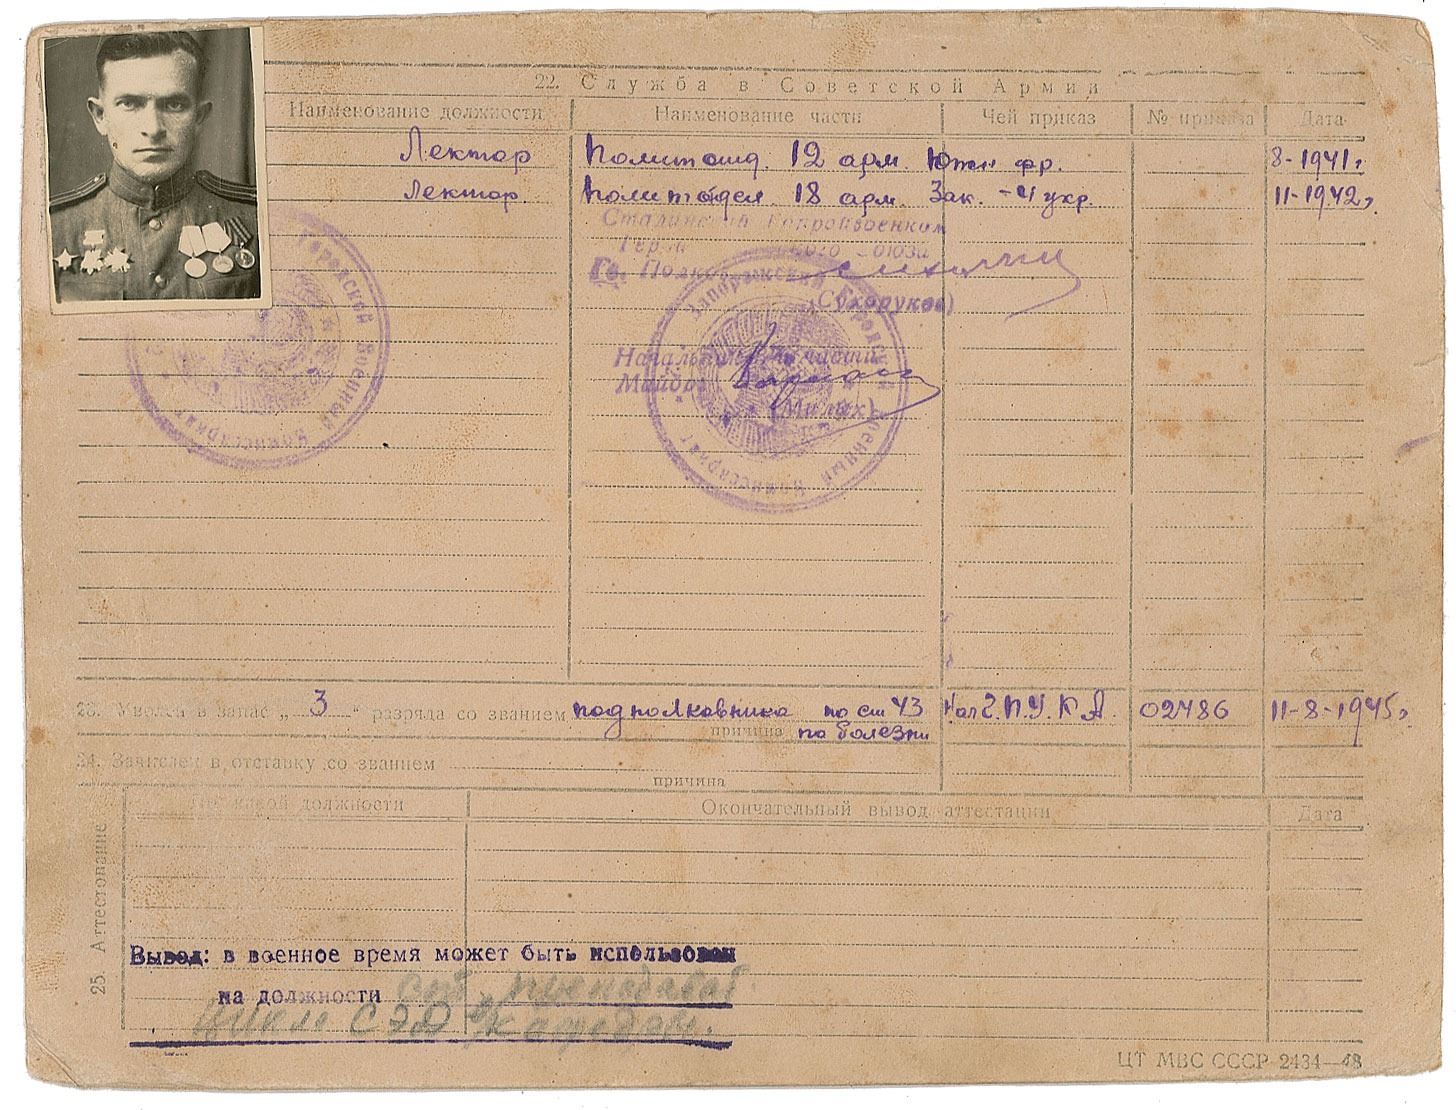 22. Служба в Советской Армии
Наименование должности Наименование части Чей приказ № приказа Дата
Лектор Политотд. 12 арм. Южн фр. 8-1941г
Лектор Политотдел 18 арм. Зак. - 4 укр. 11-1942г
Сталинский Горрайвоенком
Гв. Полковник
(Сухоруков)
Начальник части
Майор
Запорожский Городской Военный Комиссариат
Городской Военный Комиссариат
23. Уволен в запас „ 3 “ разряда со званием подполковника по ст 43 Нач Г.П.У.К.А. 02486 11-8-1945г
причина по болезни
24. Зачислен в отставку со званием
причина
25. Аттестование
По какой должности Окончательный вывод аттестации Дата
Вывод: в военное время может быть использован
на должности ст. преподават
цикла СЭД кафедры.
ЦТ МВС СССР 2434—48